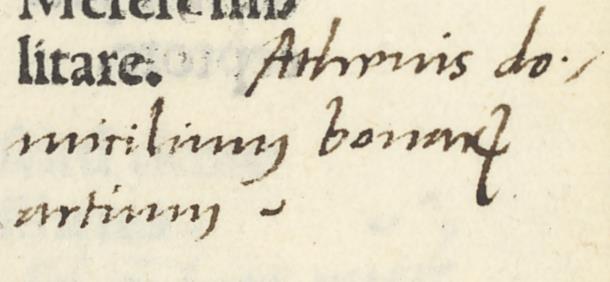 litare. Athenis do-
micilium bonaꝝ
artium